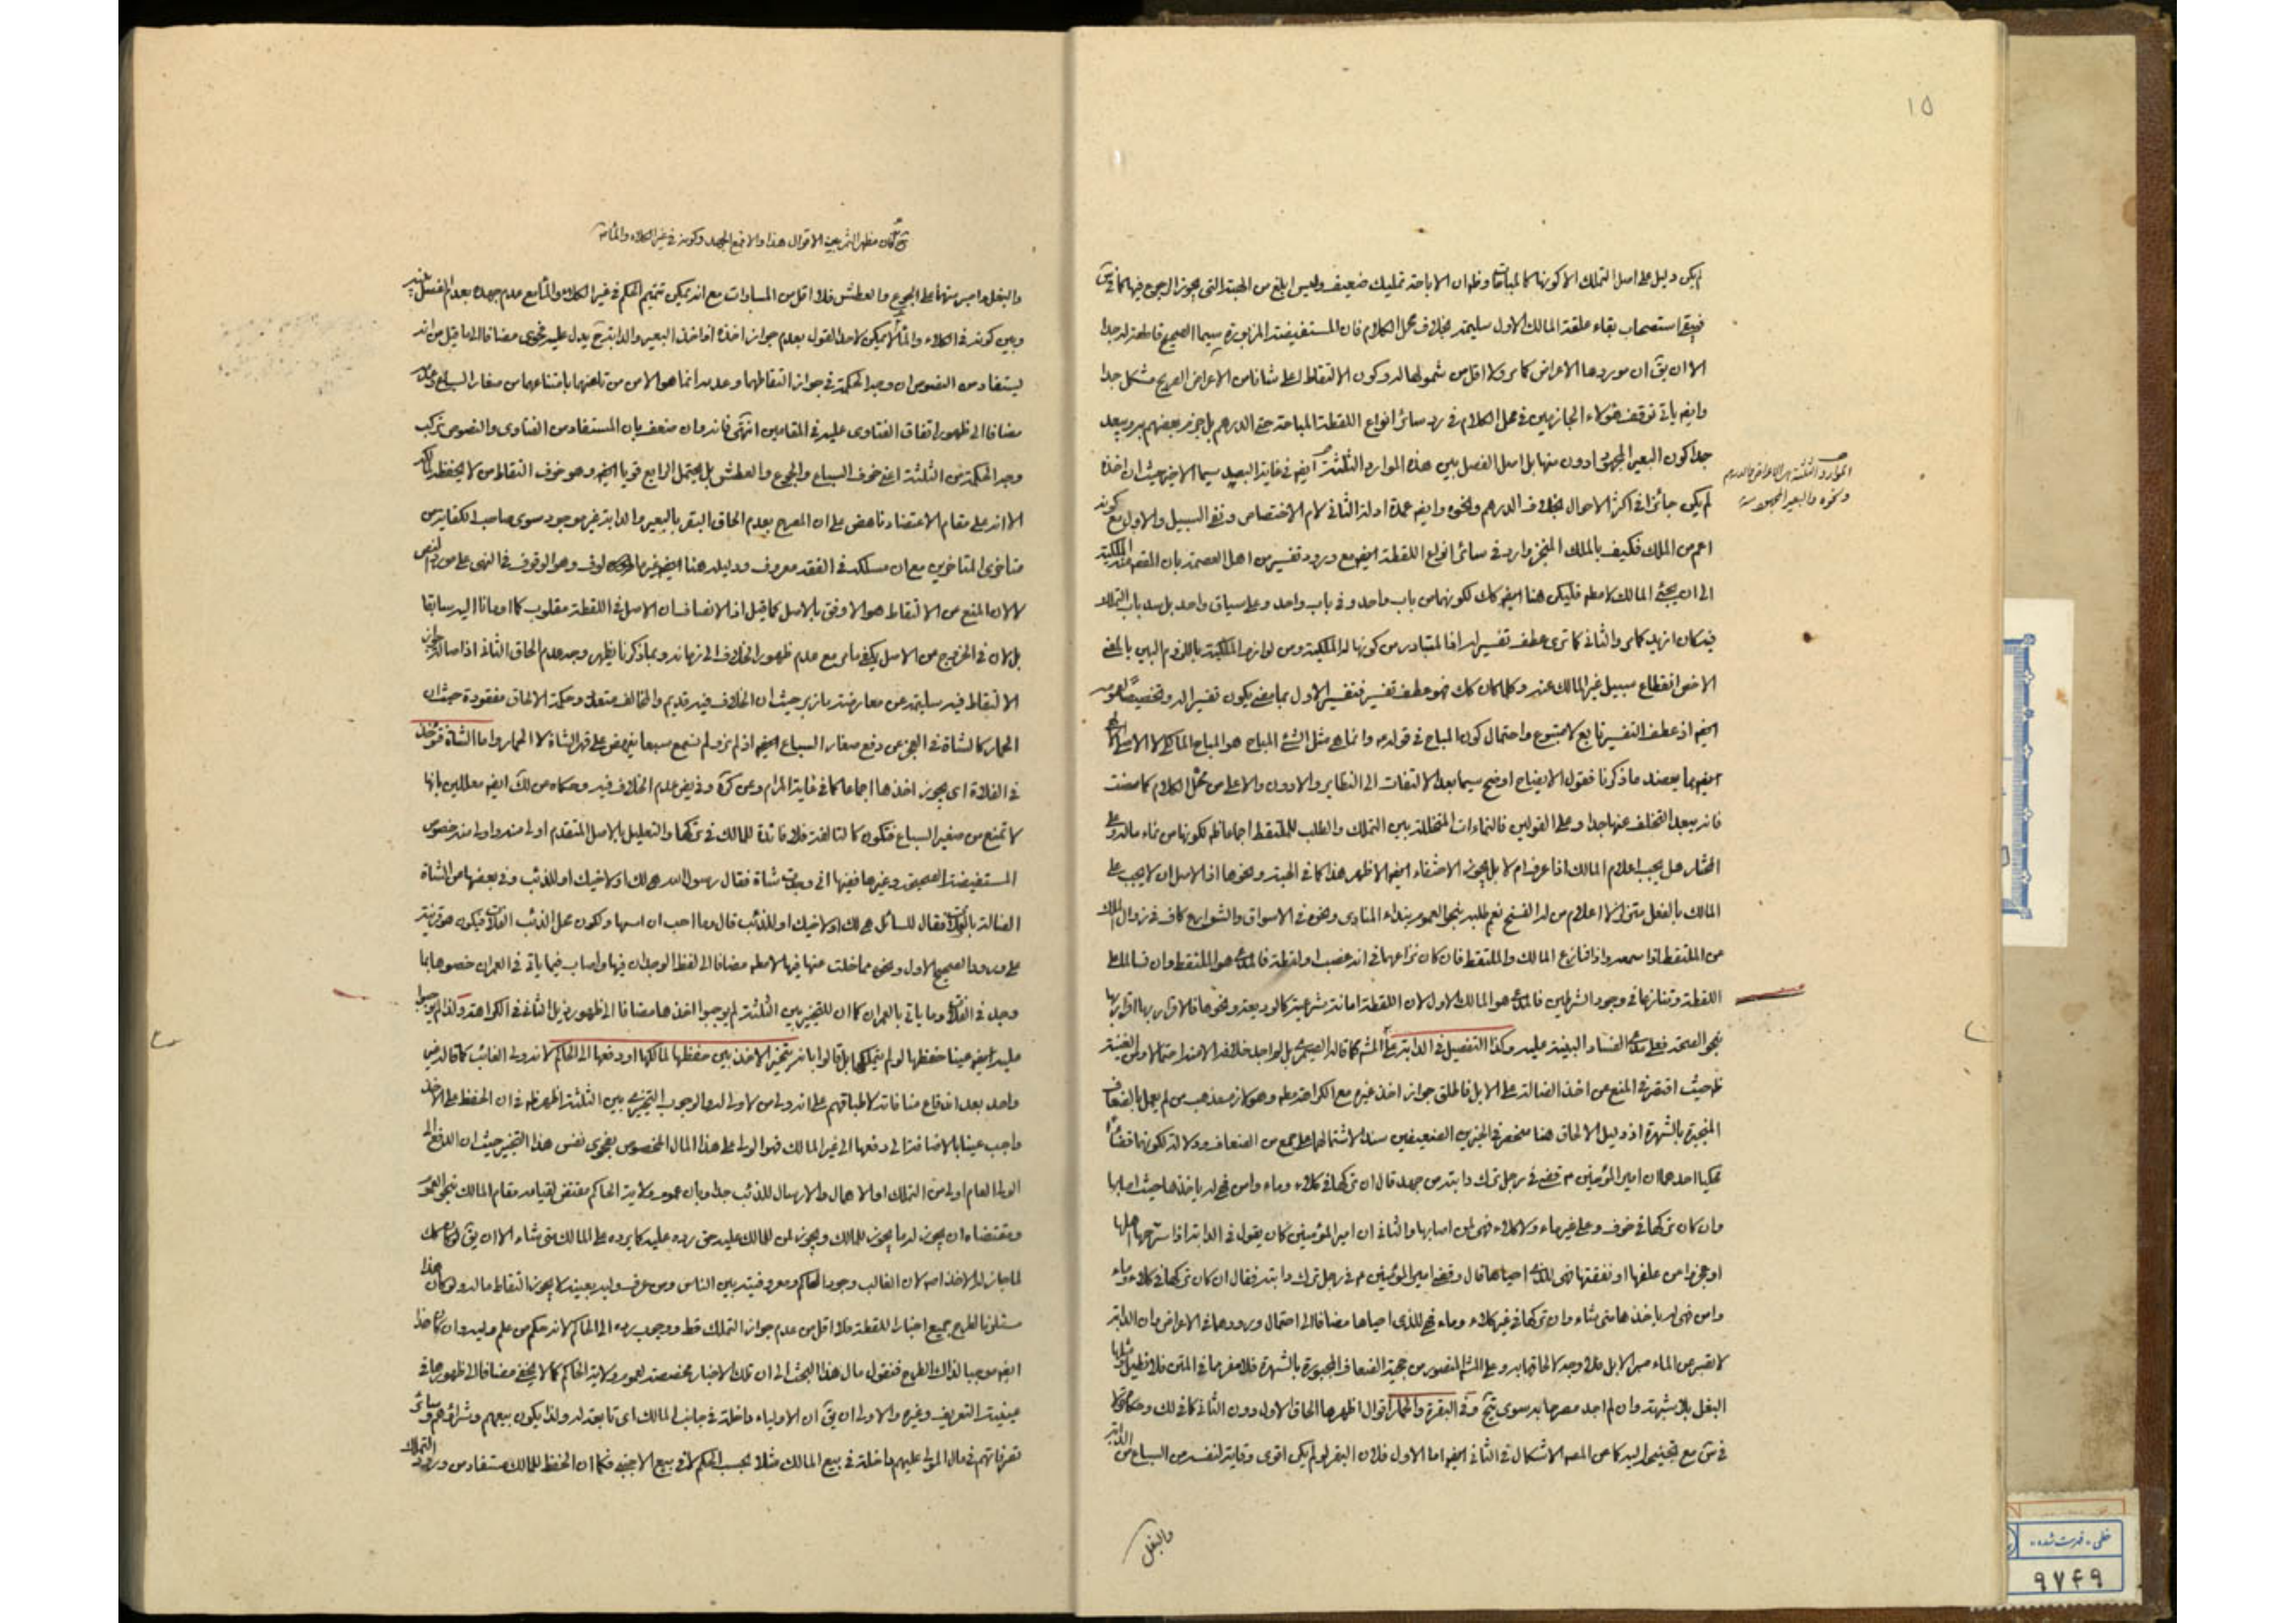 ١٥
لم يكن دليل على اصل التملك الا كونها كالمباحات وظ ان الاباحة تمليك ضعيف وليس ابلغ من الهبة التي يجوز الرجوع فيها
فيبقى استصحاب بقاء علقة المالك الاول سليمة بخلاف محل الكلام فان المستفيضة المزبورة سيما الصحيح قاطعة له جدا
الا ان يق ان موردها الاعراض كما مر ولا اقل من شمولها له وكون الالتقاط اعلى شانا من الاعراض الصريح مشكل جدا
وايضا ياتي توقف هؤلاء الجازمين في محل الكلام في رد سائر انواع اللقطة المباحة حتى الدرهم بل جزم بعضهم برده ويبعد
جدا كون البعير المجهود ادون منها بل اصل الفصل بين هذه الموارد الثلثة ايضا في غاية البعد سيما الاخير حيث ان اخذه
الموارد الثلثة هي الاعراض والدرهم
ونحوه والبعير المجهود منه
لم يكن جائزا في اكثر الاحوال بخلاف الدرهم ونحوه وايضا عمدة ادلة الثاني لام الاختصاص ونفي السبيل والاول مع كونه
اعم من الملك فكيف بالملك المنجز وارد في سائر انواع اللقطة ايضا مع ورود تفسيره من اهل العصمة بان
الى ان يجئ المالك لا مطلقا فليكن هنا ايضا كك لكونهما من باب واحد وفي باب واحد وعلى سياق واحد بل سد باب التملك
فيه كان ازيد كما مر والثاني كما ترى عطف تفسير له اذ المتبادر من كونها له الملكية ومن لوازم الملكية باللزوم البين بالمعنى
الاخص انقطاع سبيل غير المالك عنه وكلما كان كك فهو عطف تفسير فتفسير الاول بما مضى يكون تفسيرا له وتخصيصا لعمومه
ايضا اذ عطف التفسير تابع لا متبوع واحتمال كون المباح في قوله وانما هي مثل الشئ المباح هو المباح المالكي لا الاصلي
ايضا مما يعضد ما ذكرنا فقول الايضاح اوضح سيما بعد الالتفات الى النظاير والادون والاعلى من محل الكلام كما مضت
فانه يبعد التخلف عنها جدا وعلى القولين فالنماءات المتخللة بين التملك والطلب للملتقط اجماعا لكونها من نماء ماله وعلى
المختار هل يجب اعلام المالك اذا عرف ام لا بل يجوز الاختفاء ايضا الاظهر هذا كما في الهبة ونحوها اذ الاصل ان لا يجب على
المالك بالفعل متزلزلا اعلام من له الفسخ نعم طلبه بنحو العموم بنداء المنادى ونحوه في الاسواق والشوارع كاف في زوال الملك
عن الملتقط اذا سمعه واذا تنازع المالك والملتقط فان كان نزاعهما في انه غصب او لقطة فالمدعى هو الملتقط وان تسالما على
اللقطة وتنازعا في وجود الشرطين فالمدعى هو المالك الاول لان اللقطة امانة شرعية كالوديعة ونحوها فالاقرار بها اقرار بها
بنحو الصحة فعلى مدعى الفساد البينة عليه وكذا التفصيل في الدابة على المش كما قاله الصيمرى بل لم اجد خلافه الا
ظ حيث اقتصر في المنع عن اخذ الضالة على الابل فاطلق جواز اخذ غيره مع الكراهة مطلقا وهو لازم مذهب من لم يعمل بالضعاف
المنجبرة بالشهرة اذ دليل الالحاق هنا منحصر في الخبرين الضعيفين سندا لاشتمالهما على جمع من الضعاف ودلالة لكونهما قضاء
محكيا احدهما ان امير المؤمنين ع قضى في رجل ترك دابته من جهد قال ان تركها في كلاء وماء وامن فهي له ياخذها حيث اصابها
وان كان تركها في خوف وعلى غير ماء ولا كلاء فهي لمن اصابها والثاني ان امير المؤمنين كان يقول في الدابة اذا سرحها اهلها
او عجزوا عن علفها او نفقتها فهي للذى احياها قال وقضى امير المؤمنين ع في رجل ترك دابته فقال ان كان تركها في كلاء وماء
وامن فهي له ياخذها متى شاء وان تركها في غير كلاء وماء فهي للذى احياها مضافا الى احتمال ورودهما في الاعراض وان الدابة
لا تصبر عن الماء صبر الابل فلا وجه لالحاقها به وعلى المش المنصور من حجية الضعاف المجبورة بالشهرة فلا مفر مما في المتن
البغل بلا شبهة وان لم اجد مصرحا به سوى يج وفي البقرة والحمار اقوال اظهرها الحاق الاول دون الثاني كما في لك
في ش مع تجنيبه اليه كما عن المصنف الاشكال في الثاني ايضا اما الاول فلان البقر لو لم يكن اقوى وقاية لنفسه من السباع من الدابة
والبغل
والبغل فليس منهما على الجوع والعطش فلا اقل من المساوات مع انه يمكن تتميم الحكم في غير الكلاء والماء مع عدم جهده بعدم الفصل بينه
وبين كونه في الكلاء والماء اذ لا يمكن لاحد القول بعدم جواز اخذه اذا اخذ البعير والدابة ح يدل عليه فحوى مضافا الى ما قيل من انه
يستفاد من النصوص ان وجه الحكمة في جواز التقاطهما وعدمه انما هو الامن من تلفهما بامتناعهما من صغار السباع وعدمه
مضافا الى ظهور اتفاق الفتاوى عليه في المقامين انتهى فانه وان ضعف بان المستفاد من الفتاوى والنصوص تركب
وجه الحكمة من الثلثة اعني خوف السباع والجوع والعطش بل يحتمل الرابع قويا ايضا وهو خوف التقاط من لا يحفظه
الا انه على مقام الاعتضاد ناهض على ان المصرح بعدم الحاق البقر بالبعير والدابة غير موجود سوى صاحب الكفاية من
متاخرى المتاخرين مع ان مسلكه في الفقه معروف ودليله هنا ايضا غير مالوف وهو الوقوف في النهي على مورد النص
لا لان المنع من الالتقاط هو الاوفق بالاصل كما قيل اذ الانصاف ان الاصل في اللقطة مقلوب كما اومانا اليه سابقا
بل لان في الخروج من الاصل يكفي ما مر مع عدم ظهور الخلاف الى زمانه وبما ذكرنا يظهر وجه عدم الحاق الثاني اذ اصالة جواز
الالتقاط فيه سليمة عن معارضة ما زبر حيث ان الخلاف فيه قديم والمخالف متعدد وحكمة الالحاق مفقودة حيث ان
الحمار كالشاة في العجز عن دفع صغار السباع ايضا اذ لم نر ولم نسمع سبعا يفوض على قهر الشاة لا الحمار واما الشاة فتؤخذ
في الفلاة اى يجوز اخذها اجماعا كما في غاية المرام وعن كره وفي يض عدم الخلاف فيه وحكاه من لك ايضا معللين بانها
لا تمنع من صغير السباع فتكون كالتالفة فلا فائدة للمالك في تركها والتعليل بالاصل المتقدم اولى منه واولى منه خصوص
المستفيضة الصحيحة وغيرها ففيها اني وجدت شاة فقال رسول الله هي لك او لاخيك او للذئب وفي بعضها عن الشاة
الضالة بالفلاة فقال للسائل هي لك او لاخيك او للذئب قال وما احب ان امسها ولكون محل الذئب الفلاة فيكون هو قرينة
على ورود الصحيح الاول ونحوه مما خلت عنها فيها لا مطلقا مضافا الى لفظ الوجدان فيها واصاب فيما ياتي في العمران خصوها بما
وجد في الفلاة وما ياتي بالعمران كما ان للتخيير بين الثلثة لم يوجبوا اخذها مضافا الى ظهور ذيل الثاني في الكراهة ولذا لم يوجبوا
عليه ايضا عينا حفظها لو لم يتملكها بل قالوا بانه يتخير الاخذ بين حفظها لمالكها او دفعها الى الحاكم لانه ولى الغائب كما قاله غير
واحد بعد اندفاع منافاته لاطباقهم على انه ولى من لا ولى له والوجوب التخييرى بين الثلثة اظهر ظ في ان الحفظ على الاخذ
واجب عينا بالاضافة الى دفعها الى غير المالك فهو الولى على هذا المال المخصوص بفحوى نفس هذا التخيير حيث ان الدفع الى
الولى العام اولى من التملك او الاهمال والارسال للذئب جدا وبان عموم ولاية الحاكم مقتض لقيامه مقام المالك بنحو العموم
ومقتضاه ان يجوز له ما يجوز للمالك ويجوز لمن للمالك عليه حق رده عليه كما يرده على المالك متى شاء الا ان يق لو كان كك
لما جاز له الاخذ اصلا لان الغالب وجود الحاكم ومعروفيته بين الناس ومن عرف وليه بعينه لا يجوز التقاط ماله ولو كان هذا
مستلزما لطرح جميع اخبار اللقطة فلا اقل من عدم جواز التملك قط ووجوب رده الى الحاكم لانه حكم من علم وليه وان كان هذا
ايضا موجبا لذاك الطرح فنقول مال هذا البحث الى ان تلك الاخبار مخصصة لعموم ولاية الحاكم كما لا يخفى مضافا الى ظهورها في
عينية التعريف وغيره والاولى ان يق ان الاولياء داخلة في جانب المالك اى تابعة له ولذا يكون بيعهم وشرائهم وسائر
تصرفاتهم في مال المولى عليهم داخلة في بيع المالك مثلا بحسب الحكم لا في بيع الاجنبي فكما ان الحفظ للمالك مستفاد من ورود التملك
خطى - فهرست شده
٩٧٤٩